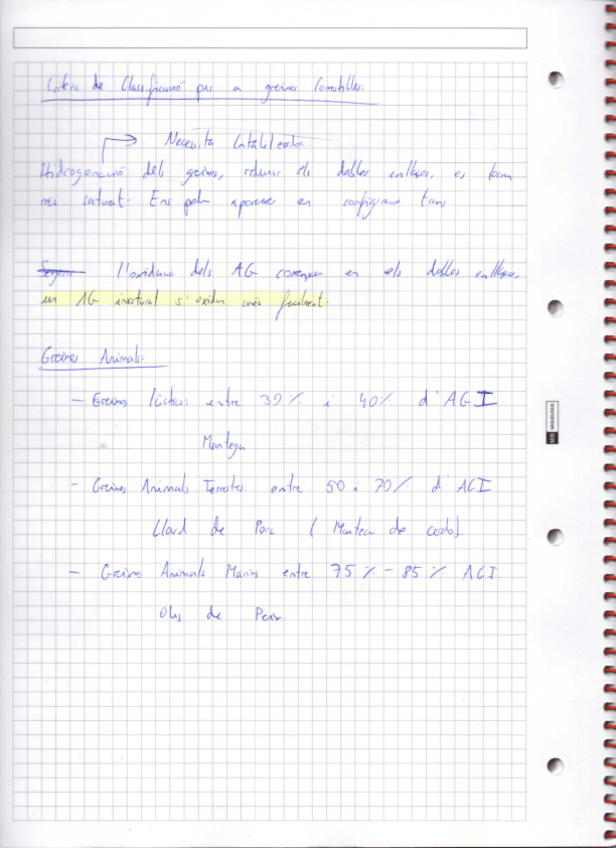 Criteris de Classificació per a greixos Comestibles.
Necessita Catalitzador
Hidrogenació dels greixos, reduir els dobles enllaços, es torna
més saturat. Ens poden apareixer en configuració trans
l'oxidació dels AG comença en els dobles enllaços,
un AG insaturat s'oxida més facilment.
Greixos Animals:
- Greixos làctics: entre 39% i 40% d'AGI
Mantega
- Greixos Animals Terrestes entre 50 i 70% d'AGI
Llard de Porc (Manteca de cerdo).
- Greixos Animals Marins entre 75% - 85% AGI
Olis de Peix
MIQUELRIUS